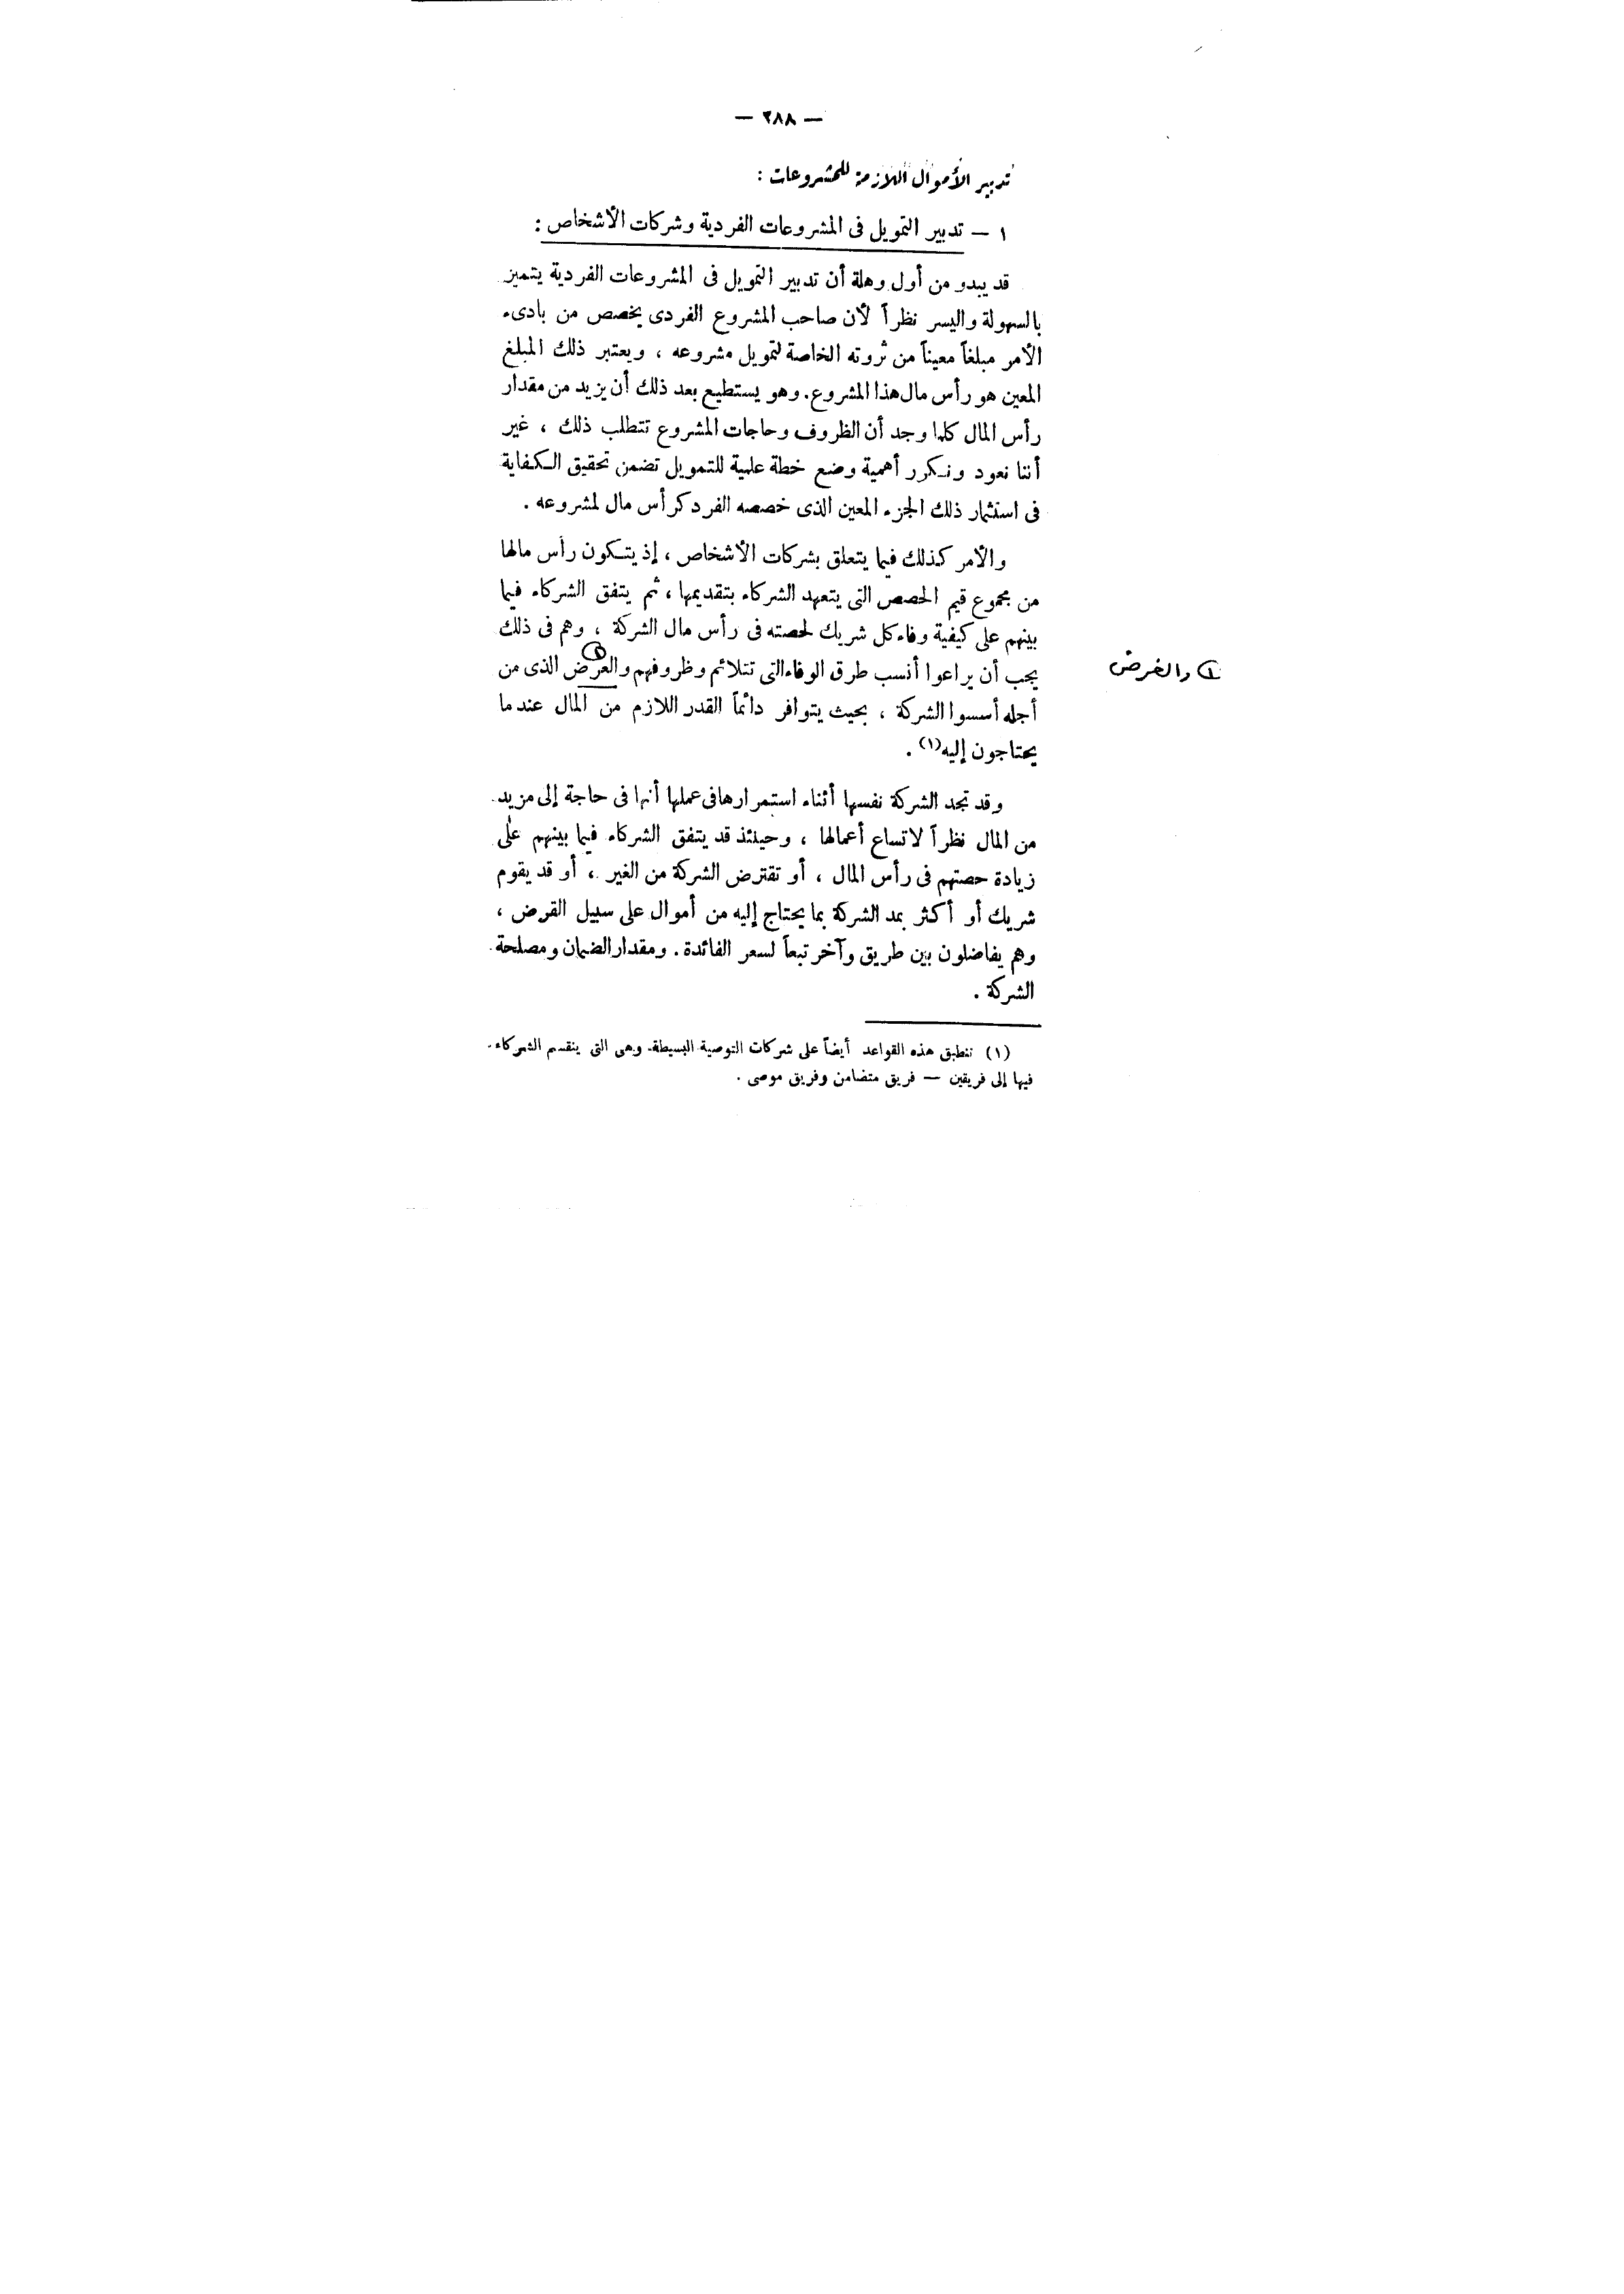 — ٢٨٨ —
تدبير الأموال اللازمة للمشروعات :
١ — تدبير التمويل فى المشروعات الفردية وشركات الأشخاص :
قد يبدو من أول وهلة أن تدبير التمويل فى المشروعات الفردية يتميز
بالسهولة واليسر نظراً لأن صاحب المشروع الفردى يخصص من بادىء
الأمر مبلغاً معيناً من ثروته الخاصة لتمويل مشروعه ، ويعتبر ذلك المبلغ
المعين هو رأس مال هذا المشروع. وهو يستطيع بعد ذلك أن يزيد من مقدار
رأس المال كلما وجد أن الظروف وحاجات المشروع تتطلب ذلك ، غير
أننا نعود ونكرر أهمية وضع خطة علمية للتمويل تضمن تحقيق الكفاية
فى استثمار ذلك الجزء المعين الذى خصصه الفرد كرأس مال لمشروعه .
والأمر كذلك فيما يتعلق بشركات الأشخاص ، إذ يتكون رأس مالها
من مجموع قيم الحصص التى يتعهد الشركاء بتقديمها ، ثم يتفق الشركاء فيما
بينهم على كيفية وفاء كل شريك لحصته فى رأس مال الشركة ، وهم فى ذلك
يجب أن يراعوا أنسب طرق الوفاء التى تتلائم وظروفهم والعرض ١ الذى من
١ والغرض
أجله أسسوا الشركة ، بحيث يتوافر دائماً القدر اللازم من المال عندما
يحتاجون إليه(١) .
وقد تجد الشركة نفسها أثناء استمرارها فى عملها أنها فى حاجة إلى مزيد
من المال نظراً لاتساع أعمالها ، وحينئذ قد يتفق الشركاء فيما بينهم على
زيادة حصتهم فى رأس المال ، أو تقترض الشركة من الغير ، أو قد يقوم
شريك أو أكثر بمد الشركة بما يحتاج إليه من أموال على سبيل القرض ،
وهم يفاضلون بين طريق وآخر تبعاً لسعر الفائدة. ومقدار الضمان ومصلحة
الشركة .
(١) تنطبق هذه القواعد أيضاً على شركات التوصية البسيطة. وهى التى ينقسم الشركاء
فيها إلى فريقين — فريق متضامن وفريق موصى .